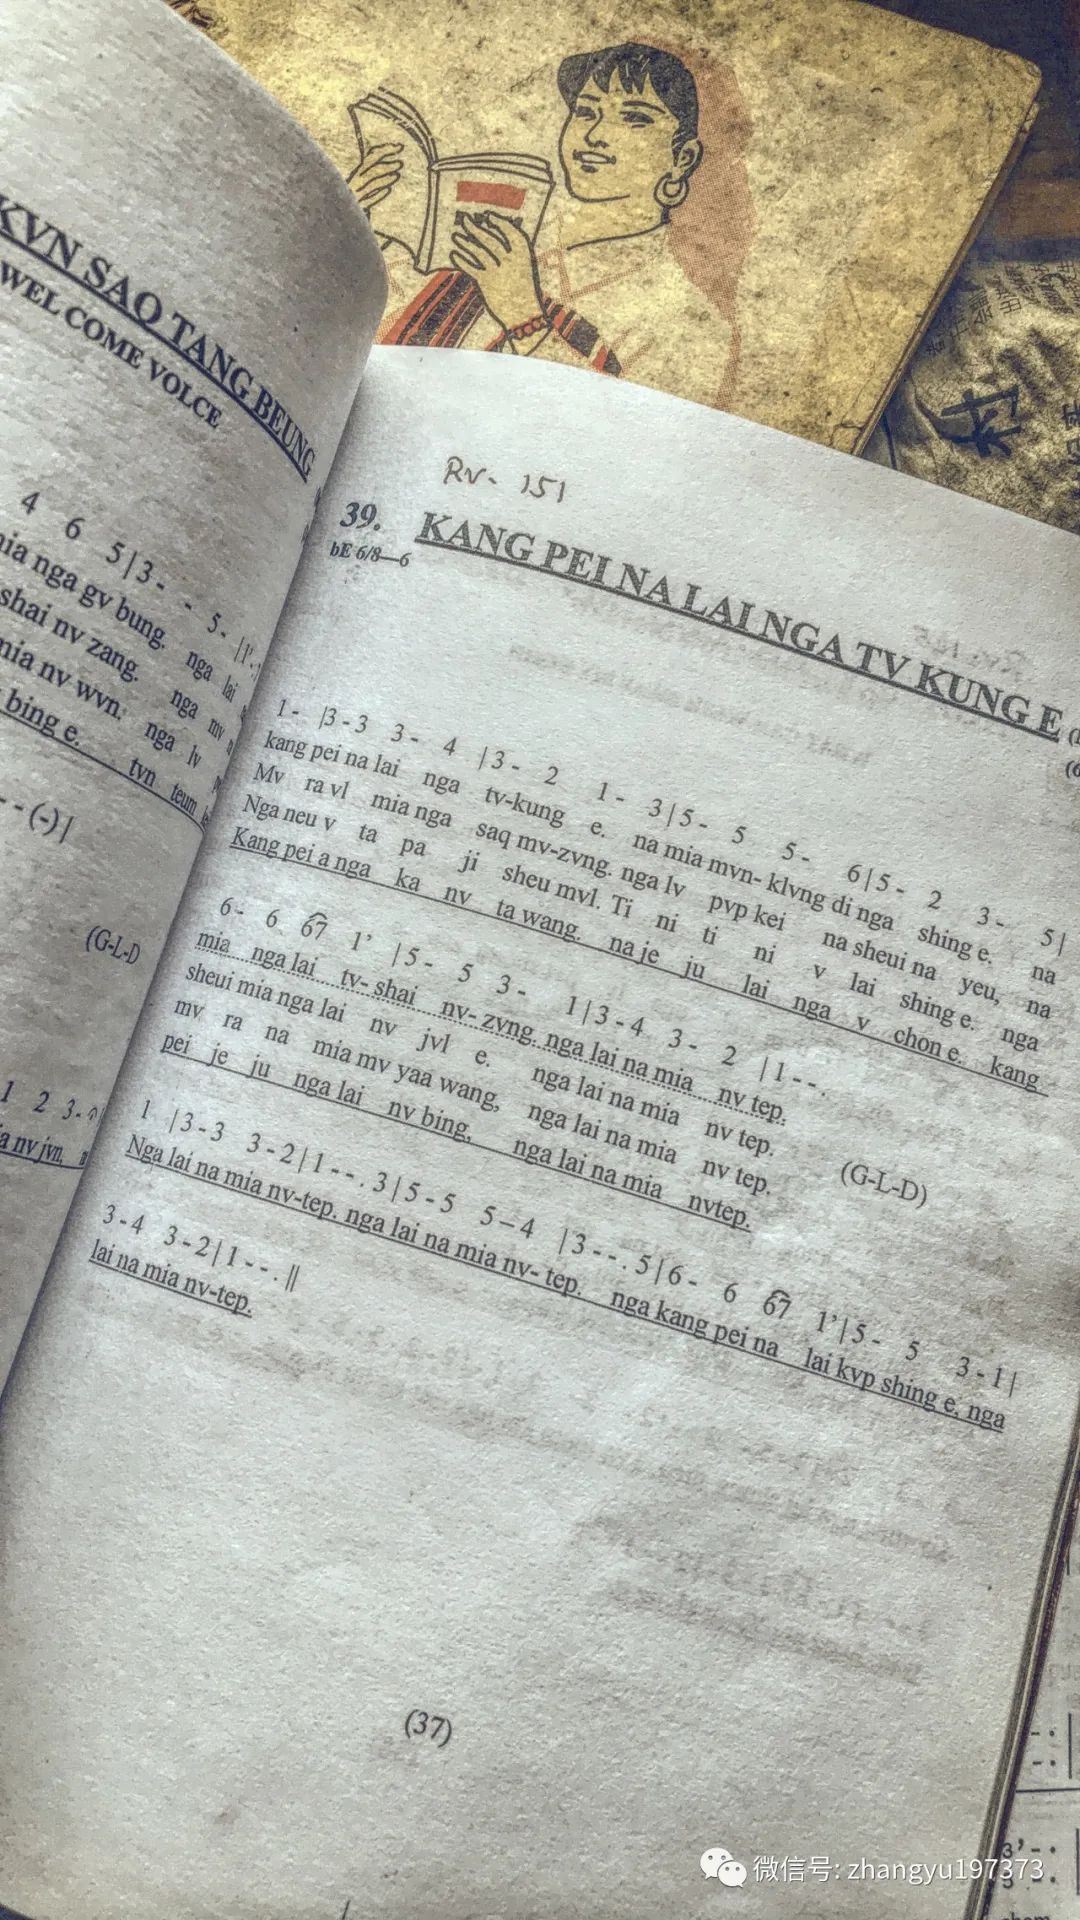 KVN SAO TANG BEUNG
WEL COME VOLCE
4 6 5 | 3 - - 5 - | 1'
nga gv bung. nga lai
shai nv zang. nga mv
mia nv wvn. nga lv
bing e. tvn teum
- - (-) |
(G-L-D
1 2 3 -
nv jvn.
Rv- 151
39. KANG PEI NA LAI NGA TV KUNG E
bE 6/8—6
1 - | 3 - 3 3 - 4 | 3 - 2 1 - 3 | 5 - 5 5 - 6 | 5 - 2 3 - 5 |
kang pei na lai nga tv-kung e. na mia mvn- klvng di nga shing e. na
Mv ra vl mia nga saq mv-zvng. nga lv pvp kei na sheui na yeu, na
Nga neu v ta pa ji sheu mvl. Ti ni ti ni v lai shing e. nga
Kang pei a nga ka nv ta wang. na je ju lai nga v chon e. kang
6 - 6 67 1' | 5 - 5 3 - 1 | 3 - 4 3 - 2 | 1 - - .
mia nga lai tv- shai nv- zvng. nga lai na mia nv tep.
sheui mia nga lai nv jvl e. nga lai na mia nv tep.
mv ra na mia mv yaa wang, nga lai na mia nv tep.
pei je ju nga lai nv bing, nga lai na mia nvtep.
(G-L-D)
1 | 3 - 3 3 - 2 | 1 - - . 3 | 5 - 5 5 – 4 | 3 - - . 5 | 6 - 6 67 1' | 5 - 5 3 - 1 |
Nga lai na mia nv-tep. nga lai na mia nv- tep. nga kang pei na lai kvp shing e, nga
3 - 4 3 - 2 | 1 - - . ||
lai na mia nv-tep.
(37)
村
微信号: zhangyu197373